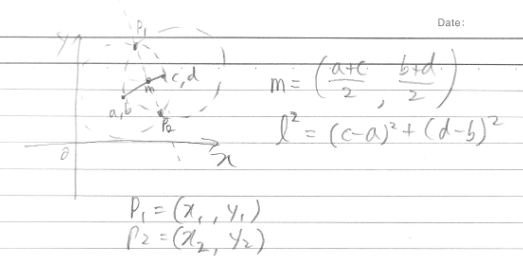 Date:
y
P₁
c, d
m
a, b
P₂
0
x
m = ( (a+c)/2 , (b+d)/2 )
l² = (c-a)² + (d-b)²
P₁ = (x₁, y₁)
P₂ = (x₂, y₂)